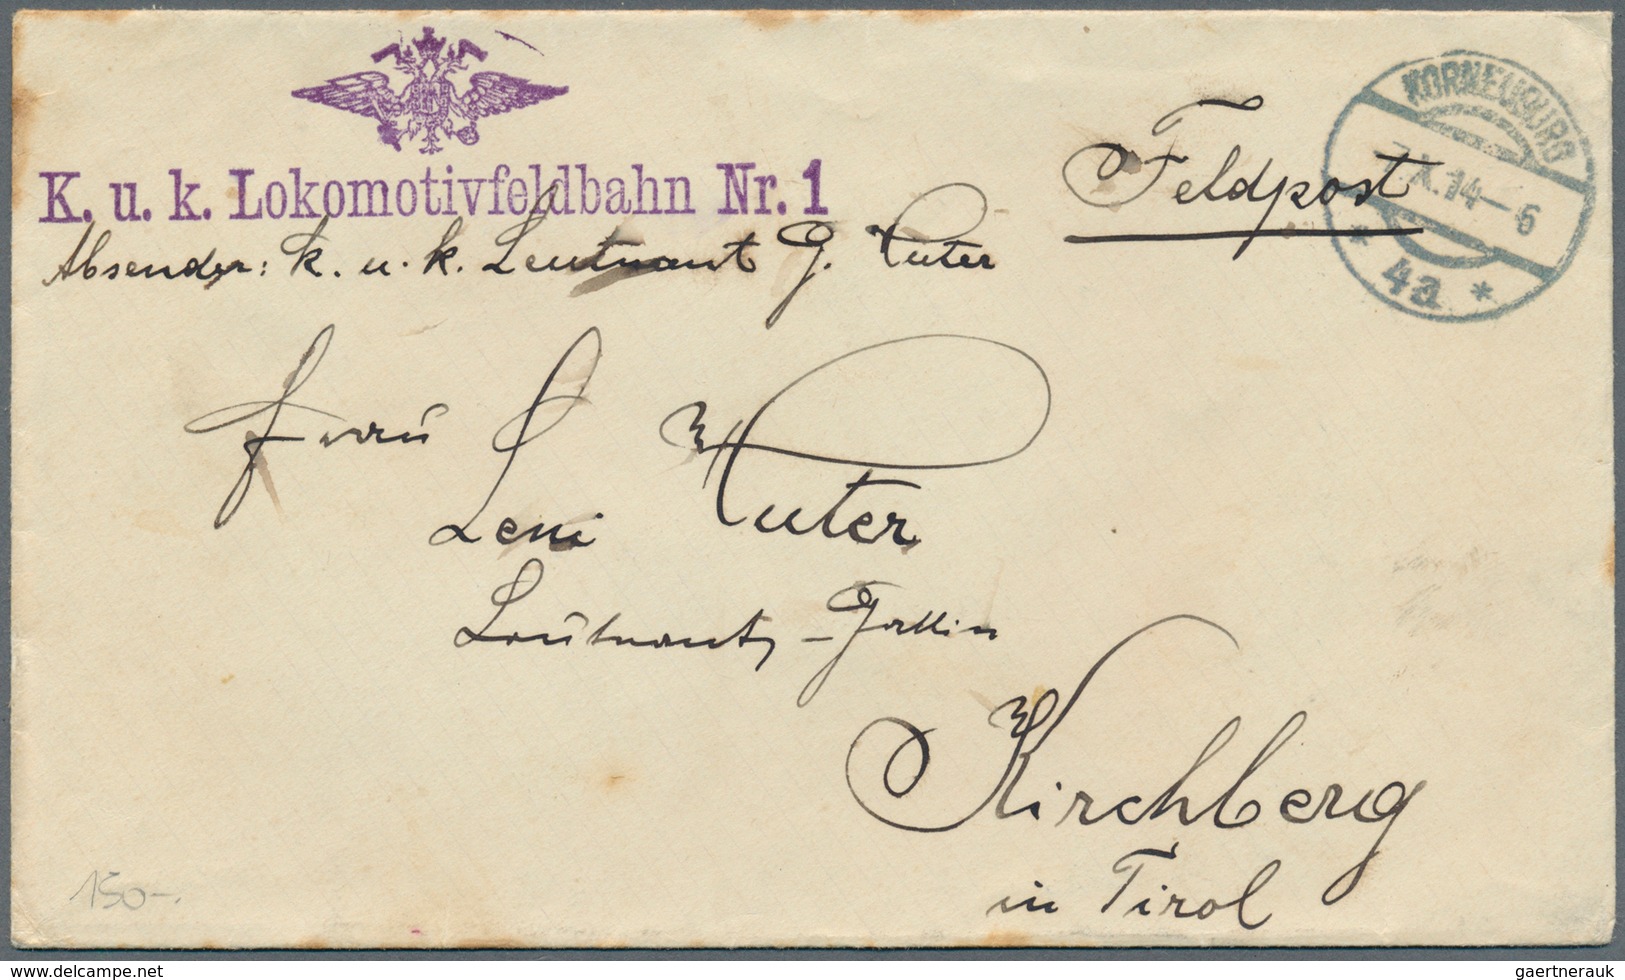 K. u. k. Lokomotivfeldbahn Nr. 1
Absender: k. u. k. Leutnant G. Kuter
Feldpost
KORNEUBURG
7.X.14-6
* 4a *
Frau
Leni Kuter
Leutnants-Gattin
Kirchberg
in Tirol
150-.
delcampe.net
gaertnerauk